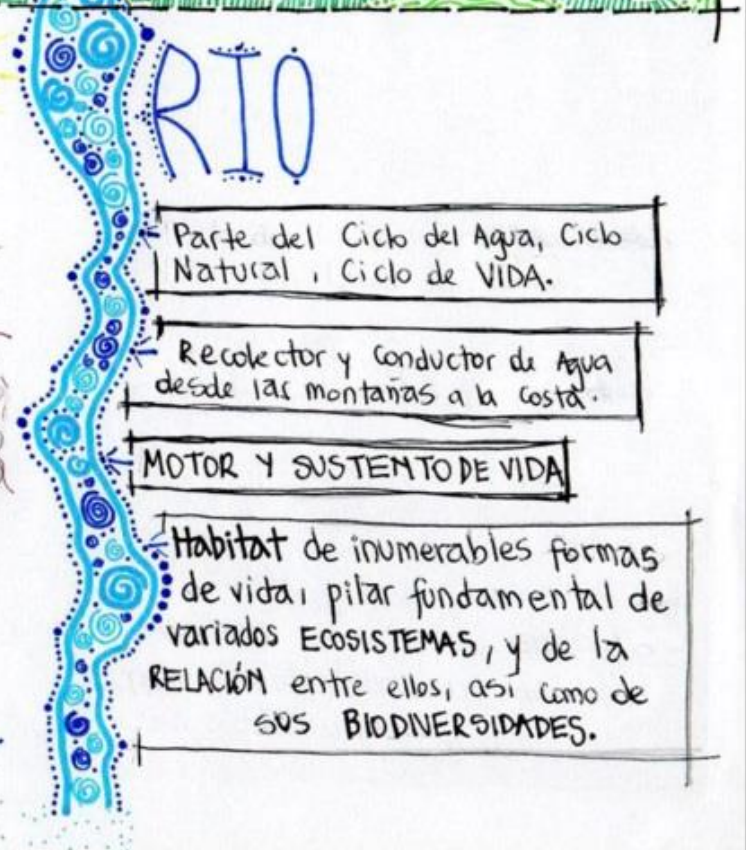 RIO
Parte del Ciclo del Agua, Ciclo
Natural, Ciclo de VIDA.
Recolector y Conductor de Agua
desde las montañas a la Costa.
MOTOR Y SUSTENTO DE VIDA
Habitat de inumerables formas
de vida, pilar fundamental de
variados ECOSISTEMAS, y de la
RELACIÓN entre ellos, asi como de
sus BIODIVERSIDADES.